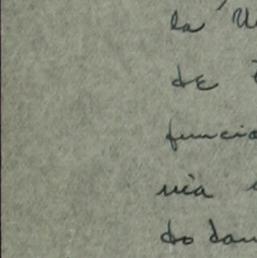 la
de
funcio
via
do dan